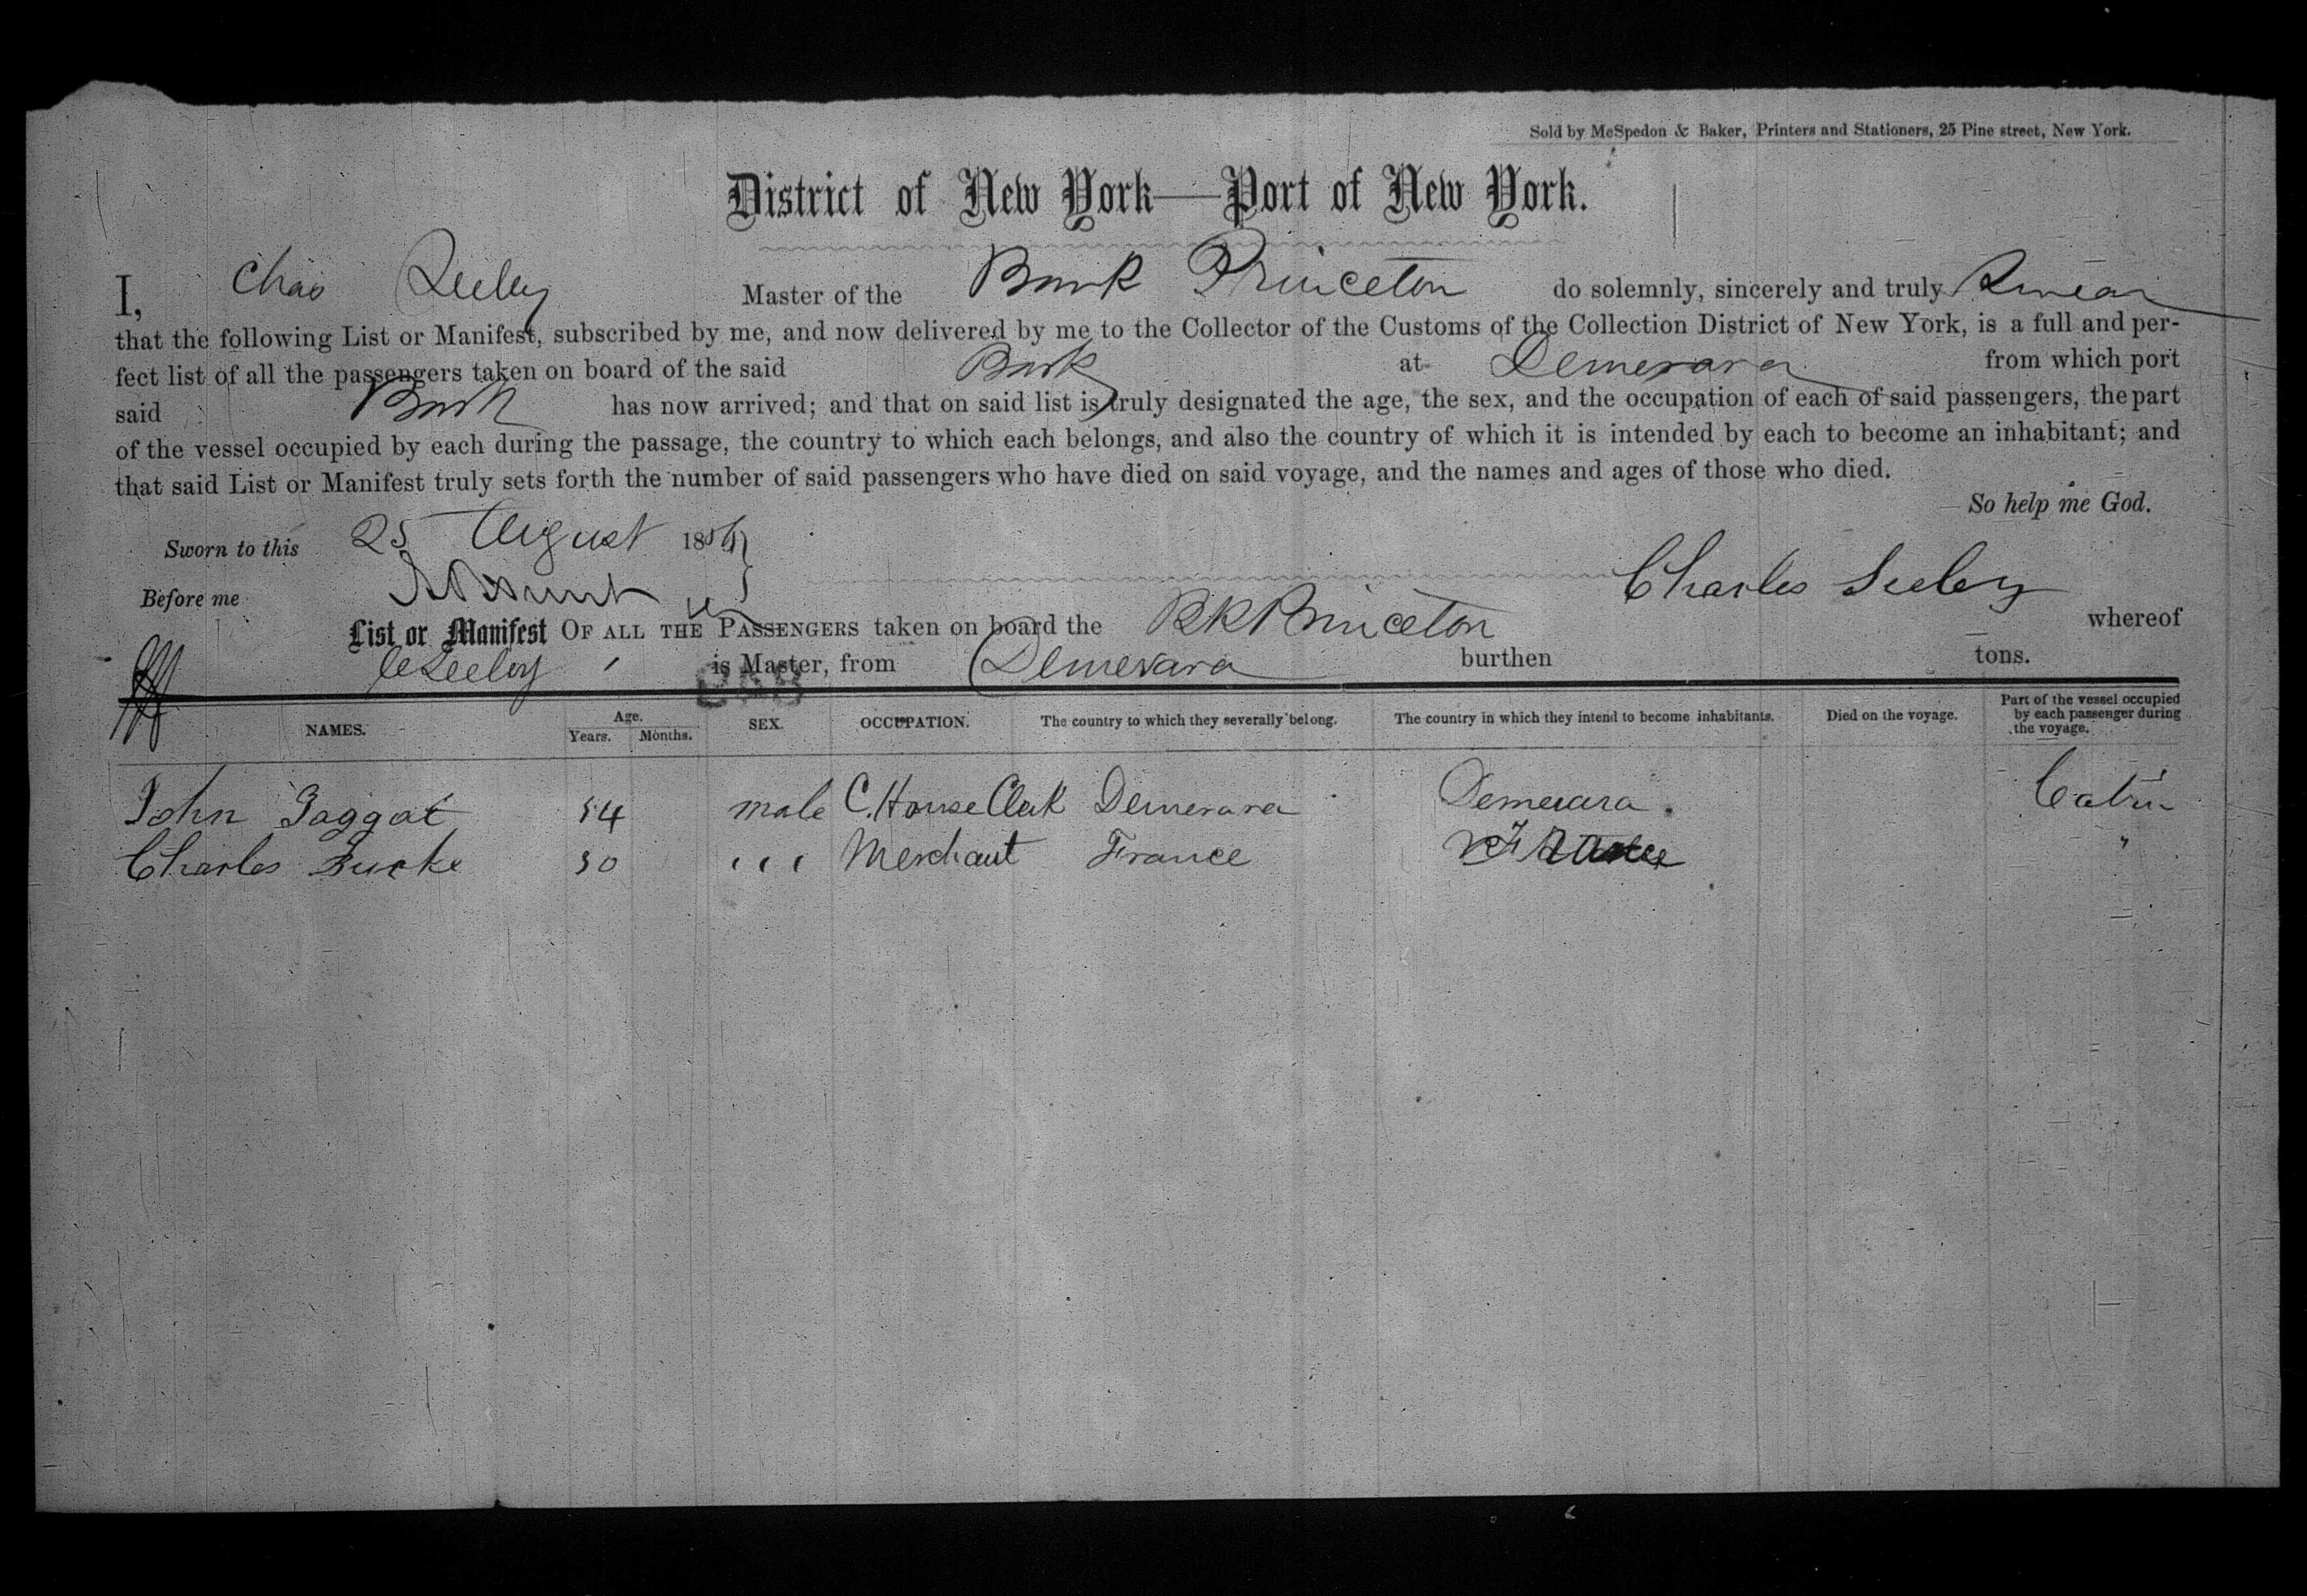 Sold by McSpedon & Baker, Printers and Stationers, 25 Pine street, New York.
District of New York—Port of New York.
I, Chas Seeley Master of the Bark Princeton do solemnly, sincerely and truly Swear
that the following List or Manifest, subscribed by me, and now delivered by me to the Collector of the Customs of the Collection District of New York, is a full and per-
fect list of all the passengers taken on board of the said Bark at Demerara from which port
said Bark has now arrived; and that on said list is truly designated the age, the sex, and the occupation of each of said passengers, the part
of the vessel occupied by each during the passage, the country to which each belongs, and also the country of which it is intended by each to become an inhabitant; and
that said List or Manifest truly sets forth the number of said passengers who have died on said voyage, and the names and ages of those who died.
So help me God.
Sworn to this 25 August 185
Before me Charles Seeley
List or Manifest OF ALL THE PASSENGERS taken on board the BK Princeton whereof
C Seeley is Master, from Demerara burthen tons.
NAMES. Age. Years. Months. SEX. OCCUPATION. The country to which they severally belong. The country in which they intend to become inhabitants. Died on the voyage. Part of the vessel occupied by each passenger during the voyage.
John Taggat 54 male C. House Clerk Demerara Demerara. Cabin
Charles 30 " Merchant France "